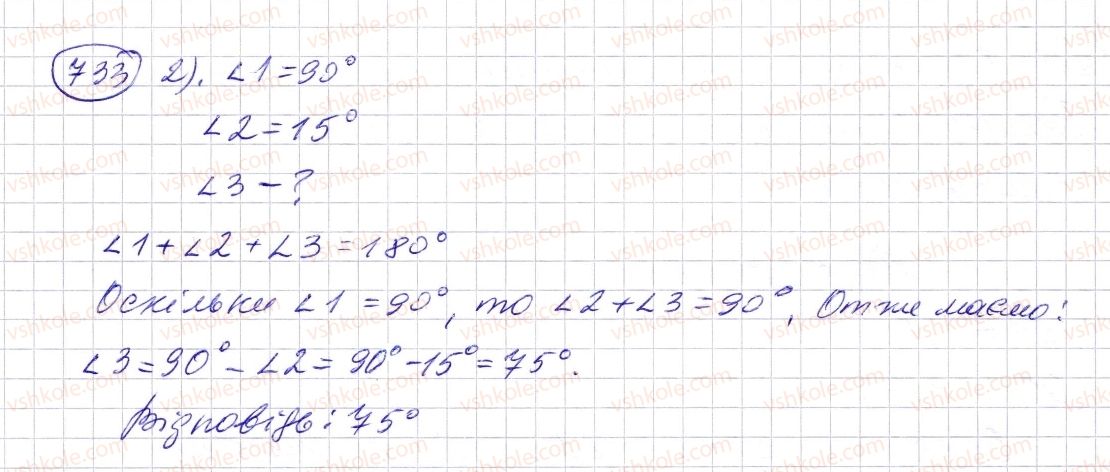 733 2). ∠1 = 90°
∠2 = 15°
∠3 – ?
∠1 + ∠2 + ∠3 = 180°
Оскільки ∠1 = 90°, то ∠2 + ∠3 = 90°. Отже маємо:
∠3 = 90° – ∠2 = 90° – 15° = 75°.
Відповідь: 75°